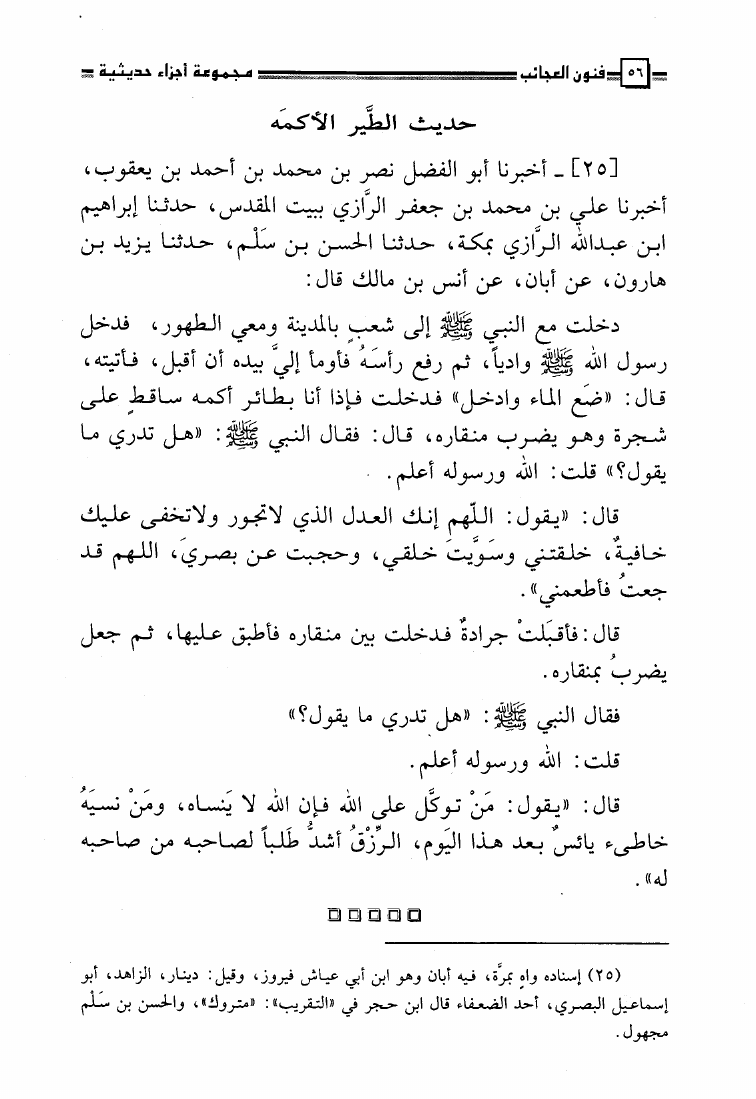 ٥٦ فنون العجائب مجموعة أجزاء حديثية
حديث الطَّير الأكمَه
[٢٥] ـ أخبرنا أبو الفضل نصر بن محمد بن أحمد بن يعقوب،
أخبرنا علي بن محمد بن جعفر الرَّازي ببيت المقدس، حدثنا إبراهيم
ابن عبدالله الرَّازي بمكة، حدثنا الحسن بن سَلْم، حدثنا يزيد بن
هارون، عن أبان، عن أنس بن مالك قال:
دخلت مع النبي ﷺ إلى شعبٍ بالمدينة ومعي الطهور، فدخل
رسول الله ﷺ وادياً، ثم رفع رأسَهُ فأومأ إليَّ بيده أن أقبل، فأتيته،
قال: «ضَع الماء وادخل» فدخلت فإذا أنا بطائر أكمه ساقطٍ على
شجرة وهو يضرب منقاره، قال: فقال النبي ﷺ: «هل تدري ما
يقول؟» قلت: الله ورسوله أعلم.
قال: «يقول: اللّهم إنك العدل الذي لاتجور ولاتخفى عليك
خافيةٌ، خلقتني وسَوَّيتَ خلقي، وحجبت عن بصريَ، اللهم قد
جعتُ فأطعمني».
قال: فأقبَلتْ جرادةٌ فدخلت بين منقاره فأطبق عليها، ثم جعل
يضربُ بمنقاره.
فقال النبي ﷺ: «هل تدري ما يقول؟»
قلت: الله ورسوله أعلم.
قال: «يقول: مَنْ توكَّل على الله فإن الله لا يَنساه، ومَنْ نسيَهُ
خاطىء يائسٌ بعد هذا اليَوم، الرِّزْقُ أشدُّ طَلباً لصاحبه من صاحبه
له».
(٢٥) إسناده واهٍ بمرَّة، فيه أبان وهو ابن أبي عياش فيروز، وقيل: دينار، الزاهد، أبو
إسماعيل البصري، أحد الضعفاء قال ابن حجر في «التقريب»: «متروك»، والحسن بن سَلْم
مجهول.